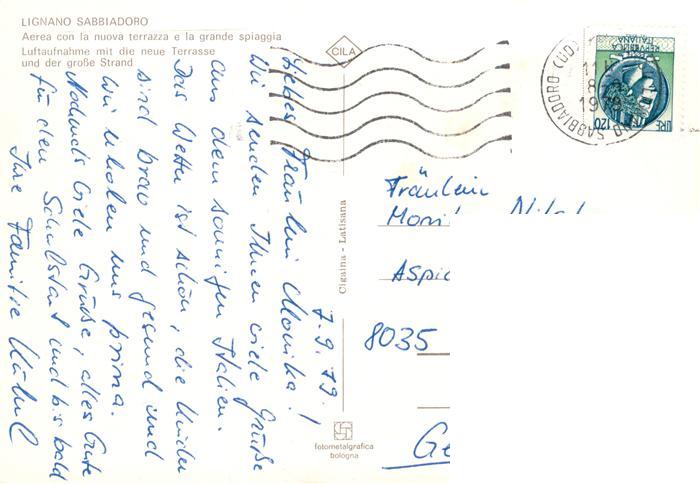 LIGNANO SABBIADORO
Aerea con la nuova terrazza e la grande spiaggia
Luftaufnahme mit die neue Terrasse
und der große Strand
CILA
7.9.79
Liebes Fräulein Monika!
Wir senden Ihnen viele Grüße
aus dem sonnigen Italien.
Das Wetter ist schön, die Kinder
sind brav und gesund und
wir erholen uns prima.
Nochmals viele Grüße, alles Gute
für den Schulstart und bis bald
Ihre Familie
Cigaina - Latisana
fotometalgrafica
bologna
REPUBBLICA
ITALIANA
LIRE 120
SABBIADORO (UD)
Fräulein
8035